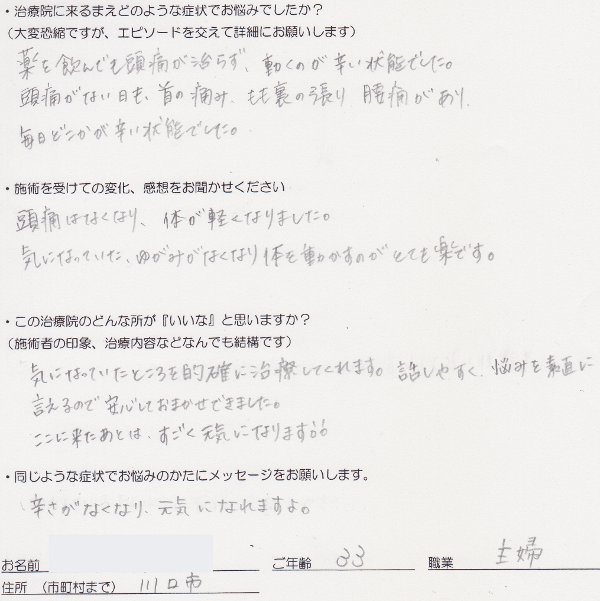 ・治療院に来るまえどのような症状でお悩みでしたか？
（大変恐縮ですが、エピソードを交えて詳細にお願いします）
薬を飲んでも頭痛が治らず、動くのが辛い状態でした。
頭痛がない日も、首の痛み、もも裏の張り、腰痛があり、
毎日どこかが辛い状態でした。
・施術を受けての変化、感想をお聞かせください
頭痛はなくなり、体が軽くなりました。
気になっていた、ゆがみがなくなり体を動かすのがとても楽です。
・この治療院のどんな所が『いいな』と思いますか？
（施術者の印象、治療内容などなんでも結構です）
気になっていたところを的確に治療してくれます。話しやすく、悩みを素直に
言えるので安心しておまかせできました。
ここに来たあとは、すごく元気になります!!
・同じような症状でお悩みのかたにメッセージをお願いします。
辛さがなくなり、元気になれますよ。
お名前 ご年齢 33 職業 主婦
住所 （市町村まで） 川口市